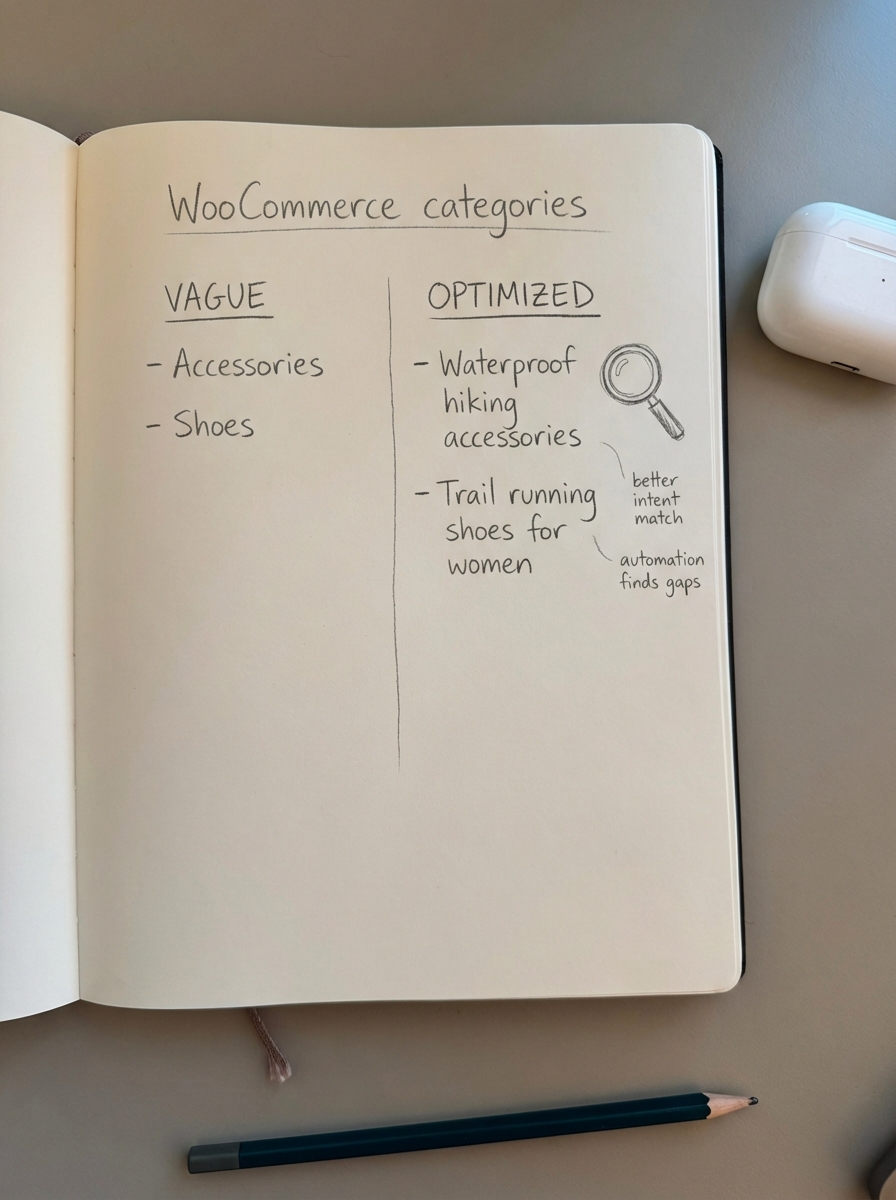 WooCommerce categories
VAGUE
- Accessories
- Shoes
OPTIMIZED
- Waterproof
hiking
accessories
- Trail running
shoes for
women
better
intent
match
automation
finds gaps